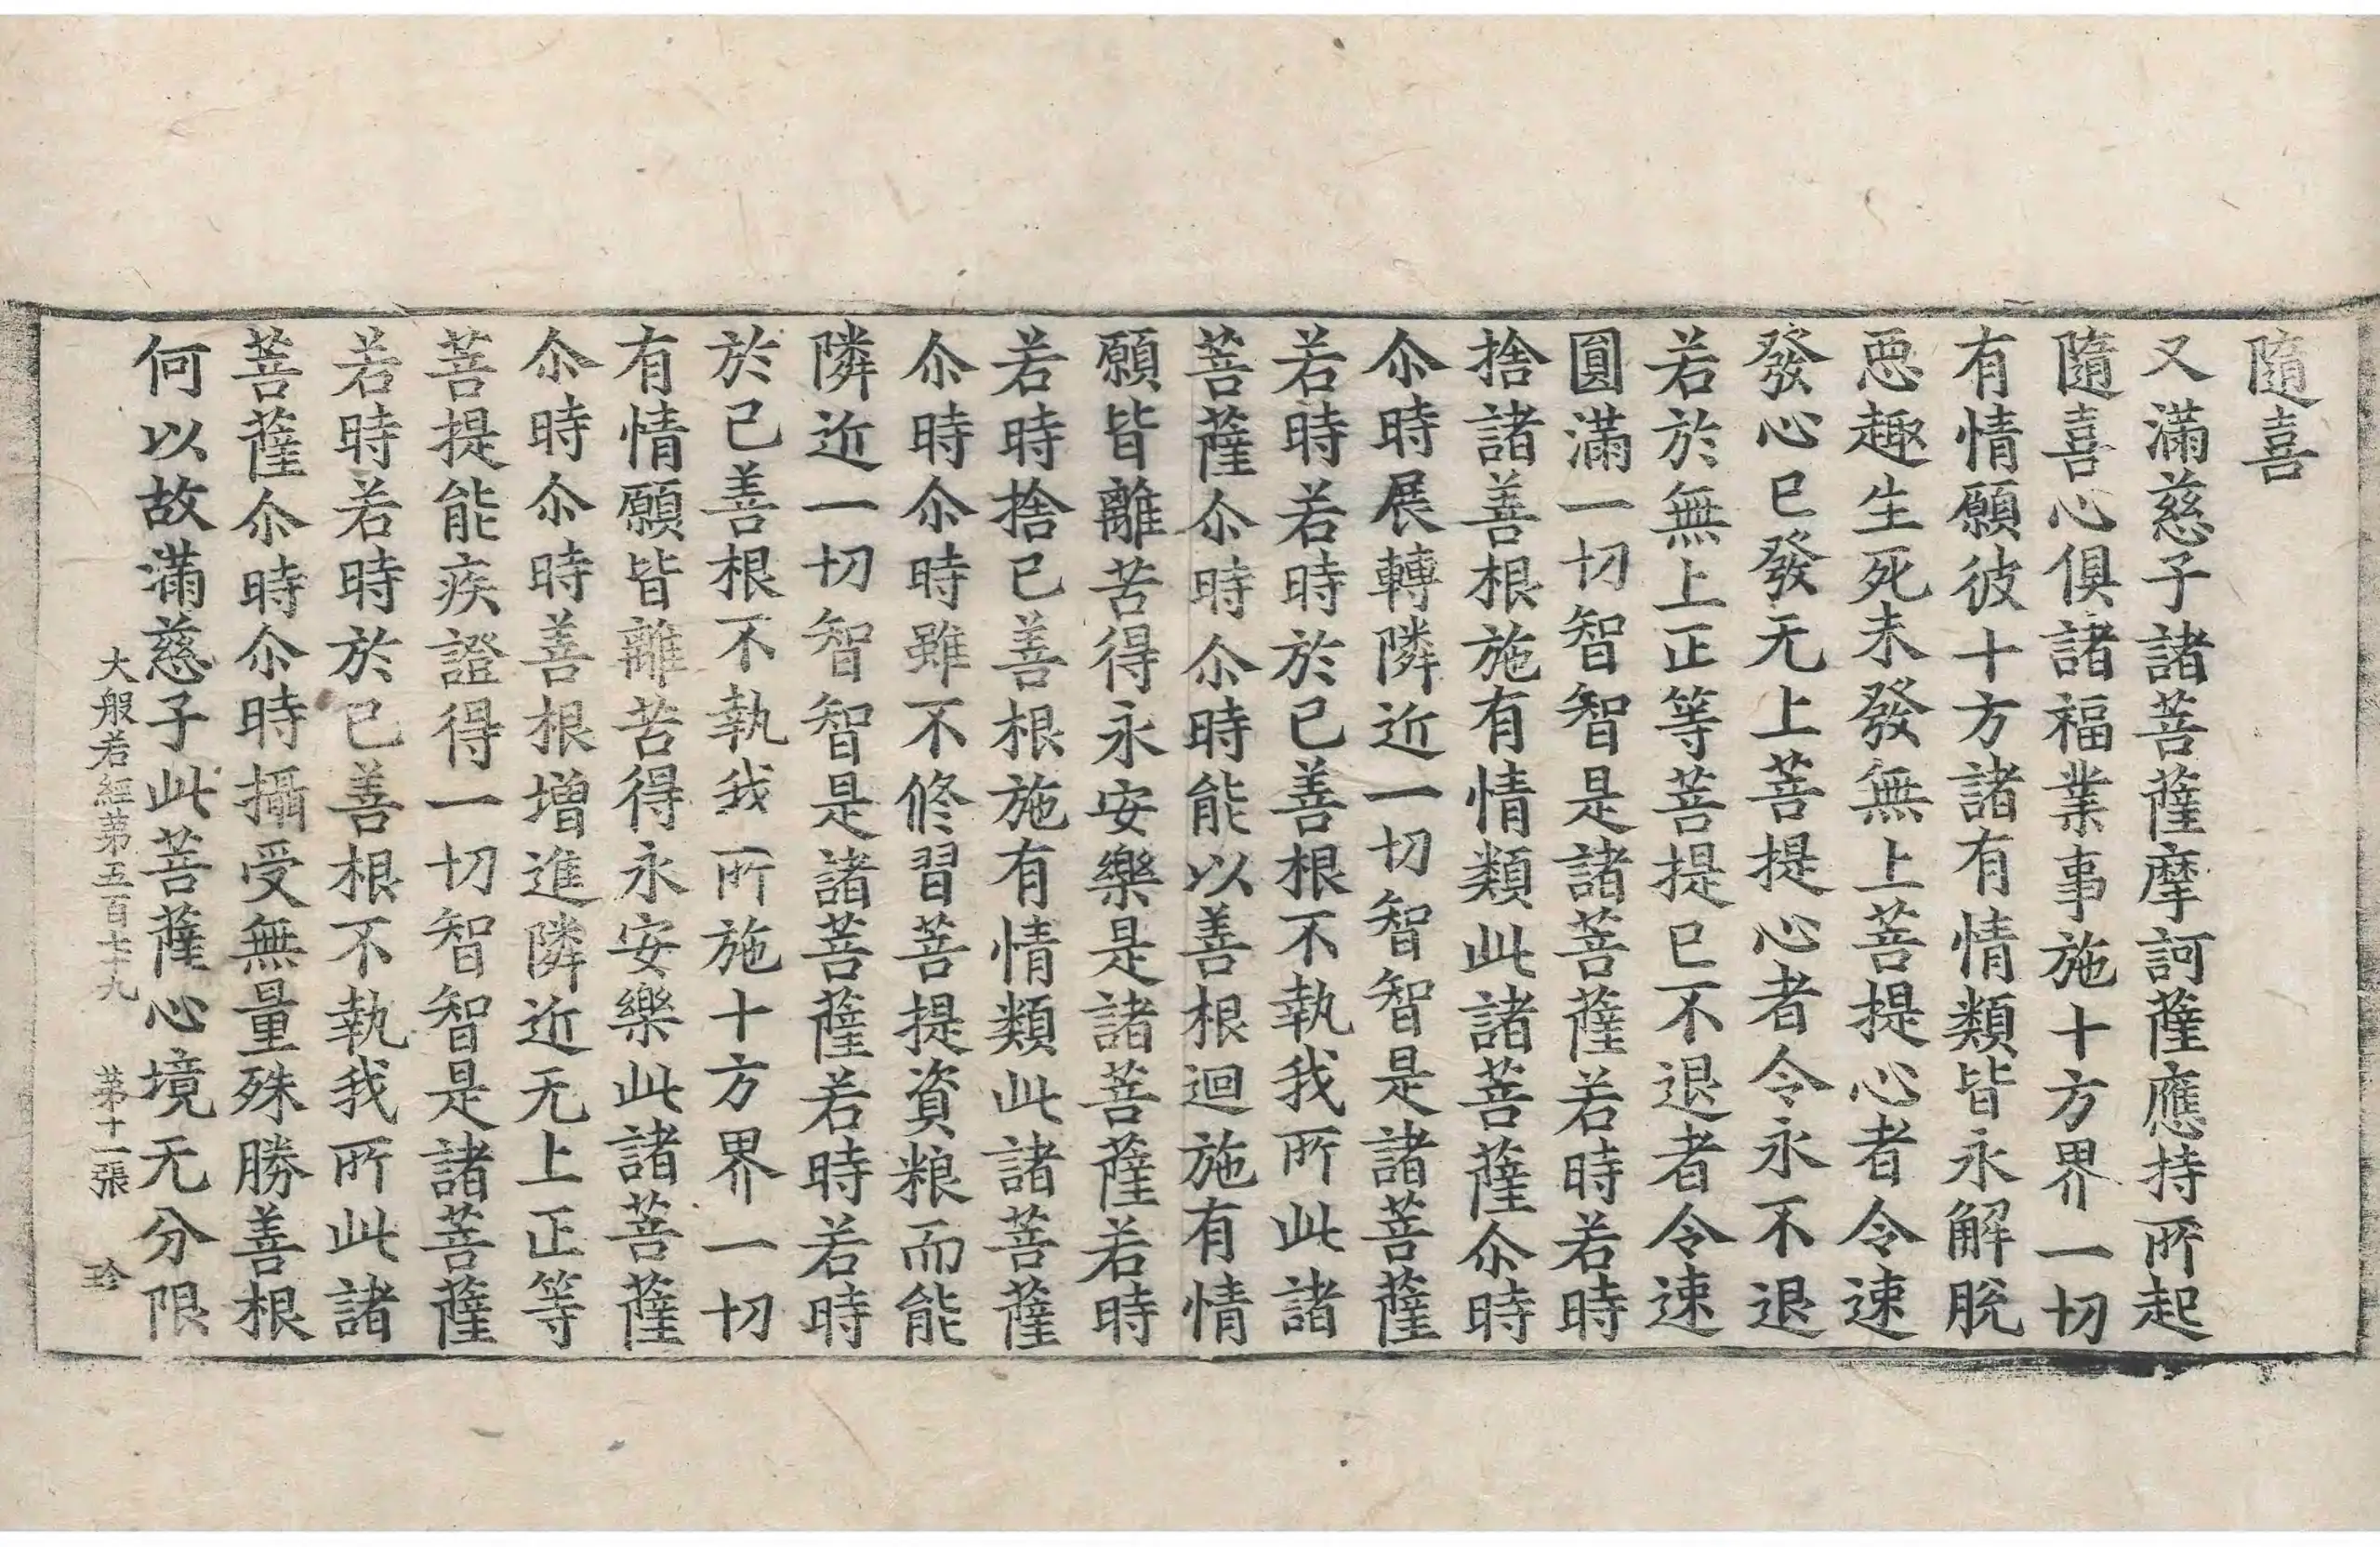 隨喜
又滿慈子諸菩薩摩訶薩應持所起
隨喜心俱諸福業事施十方界一切
有情願彼十方諸有情類皆永解脫
惡趣生死未發無上菩提心者令速
發心已發无上菩提心者令永不退
若於無上正等菩提已不退者令速
圓滿一切智智是諸菩薩若時若時
捨諸善根施有情類此諸菩薩尒時
尒時展轉隣近一切智智是諸菩薩
若時若時於己善根不執我所此諸
菩薩尒時尒時能以善根迴施有情
願皆離苦得永安樂是諸菩薩若時
若時捨己善根施有情類此諸菩薩
尒時尒時雖不修習菩提資粮而能
隣近一切智智是諸菩薩若時若時
於己善根不執我所施十方界一切
有情願皆離苦得永安樂此諸菩薩
尒時尒時善根增進隣近无上正等
菩提能疾證得一切智智是諸菩薩
若時若時於己善根不執我所此諸
菩薩尒時尒時攝受無量殊勝善根
何以故滿慈子此菩薩心境无分限
大般若經第五百七十九 第十一張 珎